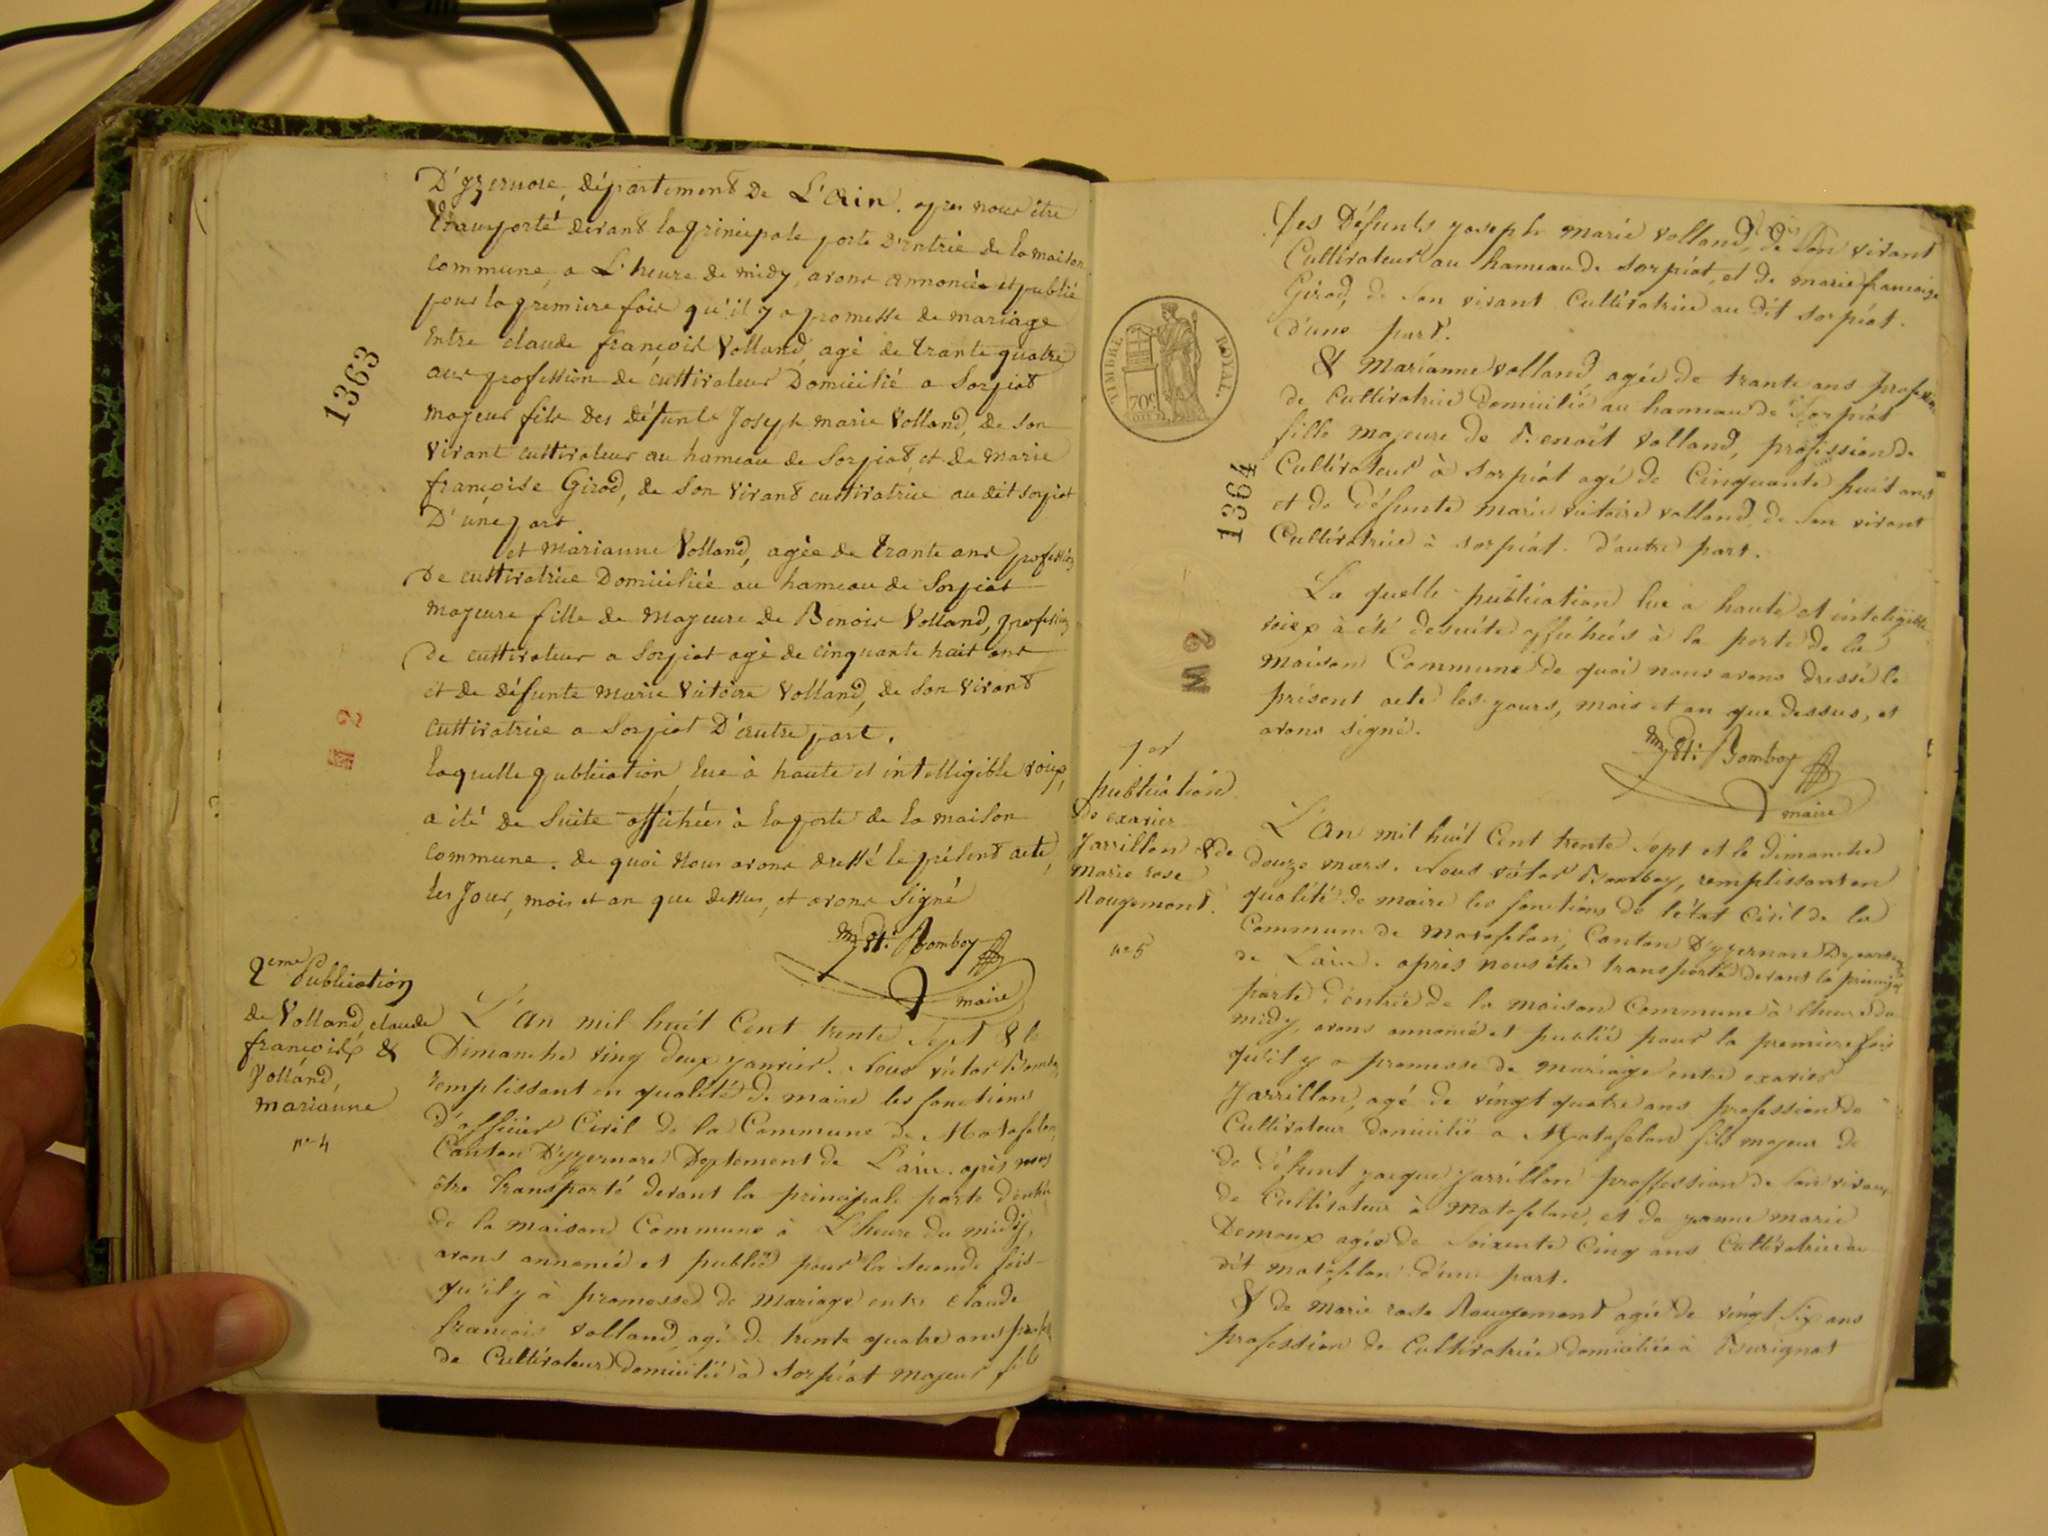 1363
D'yzernore, département de L'Ain. apres nous être
transporté devant la principale porte d'entrée de la maison
commune, a L'heure de midy, avons annoncée et publié
pour la premiere fois qu'il y a promesse de mariage
Entre claude françois Volland, agé de trante quatre
ans profession de cultivateur Domicilié a Sorpiat
majeur fils des défunts Joseph marie Volland, de son
vivant cultivateur au hameau de Sorpiat, et de marie
françoise Girod, de son vivant cultivatrice au dit sorpiat
D'une part.
et marianne Volland, agée de trante ans profession
De cultivatrice Domiciliée au hameau de Sorpiat
majeure fille de majeure de Benoit Volland, profession
de cultivateur a Sorpiat agé de cinquante huit ans
et de défunte marie victoire Volland, de son vivant
cultivatrice a Sorpiat D'autre part.
laquelle publication, lue à haute et intelligible voix,
a été de suite affichée à la porte de la maison
commune. de quoi nous avons dressé le présent acte,
les Jour, mois et an que dessus, et avons signé
Bomboy
maire
2eme Publication
de Volland, claude
françois &
Volland,
marianne
n° 4
L'An mil huit Cent trente sept & le
Dimanche ving deux janvier. Nous victor Bomboy,
remplissant en qualité de maire les fonctions
d'officier Civil de la Commune de Matafelon,
Canton D'yzernore Deptement de L'ain. après nous
être transporté devant la principale porte d'entrée
de la maison Commune à L'heure du midy,
avons annoncé et publié pour la seconde fois
qu'il y à promesse de mariage entre claude
francois volland, agé de trente quatre ans profes
de Cultivateur domicilié à Sorpiat majeur fils
TIMBRE ROYAL
70c
1364
des Défunts joseph marie volland, de son vivant
Cultivateur au hameau de sorpiat, et de marie francoise
Girod, de son vivant Cultivatrice au dit sorpiat.
d'une part.
& marianne volland agée de trante ans profession
de Cultivatrice Domicilié au hameau de Sorpiat
fille majeure de Benoit volland, profession de
Cultivateur à sorpiat agé de Cinquante huit ans
et de défunte marie victoire volland, de son vivant
Cultivatrice à sorpiat. d'autre part.
La quelle publication lue a haute et inteligible
voix à été de suite affichée à la porte de la
maison Commune de quoi nous avons dressé le
présent acte les jours, mois et an que dessus, et
avons signé.
Bomboy
maire
1er
publication
de exavier
Jarrillon & de
marie rose
Rougemont.
n° 5
L'An mil huit Cent trente sept et le dimanche
douze mars. Nous victor Bomboy, remplissant en
qualité de maire les fonctions de l'état Civil de la
Commune de matafelon, Canton D'yzernore Departement
de L'ain. après nous être transporté devant la principale
porte d'entrée de la maison Commune à l'heure du
midy, avons annoncé et publié pour la premiere fois
qu'il y a promesse de mariage entre exavier
Jarrillon, agé de vingt quatre ans profession de
Cultivateur domicilié a Matafelon fils majeur de
de défunt jacque jarrillon proffession de son vivant
de Cultivateur à matafelon, et de jeanne marie
Demoux agée de soixente Cinq ans Cultivatrice au
dit matafelon d'une part.
& de marie rose Rougemont agée de vingt six ans
profession de Cultivatrice domiciliée à Burignat